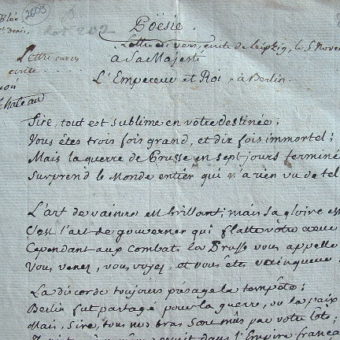 2603
Poësie.
Lettre en vers, écrite de Leipzig, le 5 Nove
a Sa Majesté
L'Empereur et Roi, à Berlin.
Lettre en vers
écrite
Sire, tout est sublime en votre destinée;
Vous êtes trois fois grand, et dix fois immortel;
Mais la guerre de Prusse en sept jours terminée
Surprend le Monde entier qui n'a rien vu de tel
L'art de vaincre est brillant, mais sa gloire est
C'est l'art de gouverner qui flatte votre
Cependant aux combats la Prusse vous appelle
Vous venez, vous voyez, et vous êtes vainqueur
La discorde toujours présage la tempête;
Berlin fut partagé pour la guerre, ou la paix
Mais, Sire, tous nos bras sont mûs par votre tête;
dans l'Empire frança